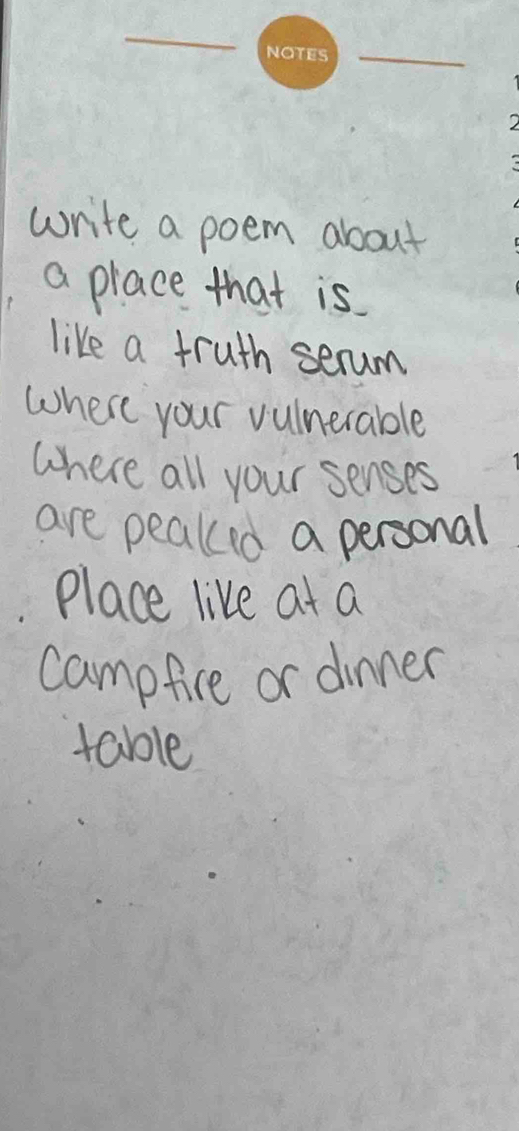 NOTES
write a poem about
a place that is
like a truth serum
where your vulnerable
where all your senses
are peaked a personal
Place like at a
Campfire or dinner
table